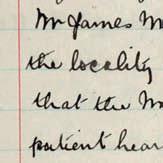 Mr James M
the locality
that the M
patient hear